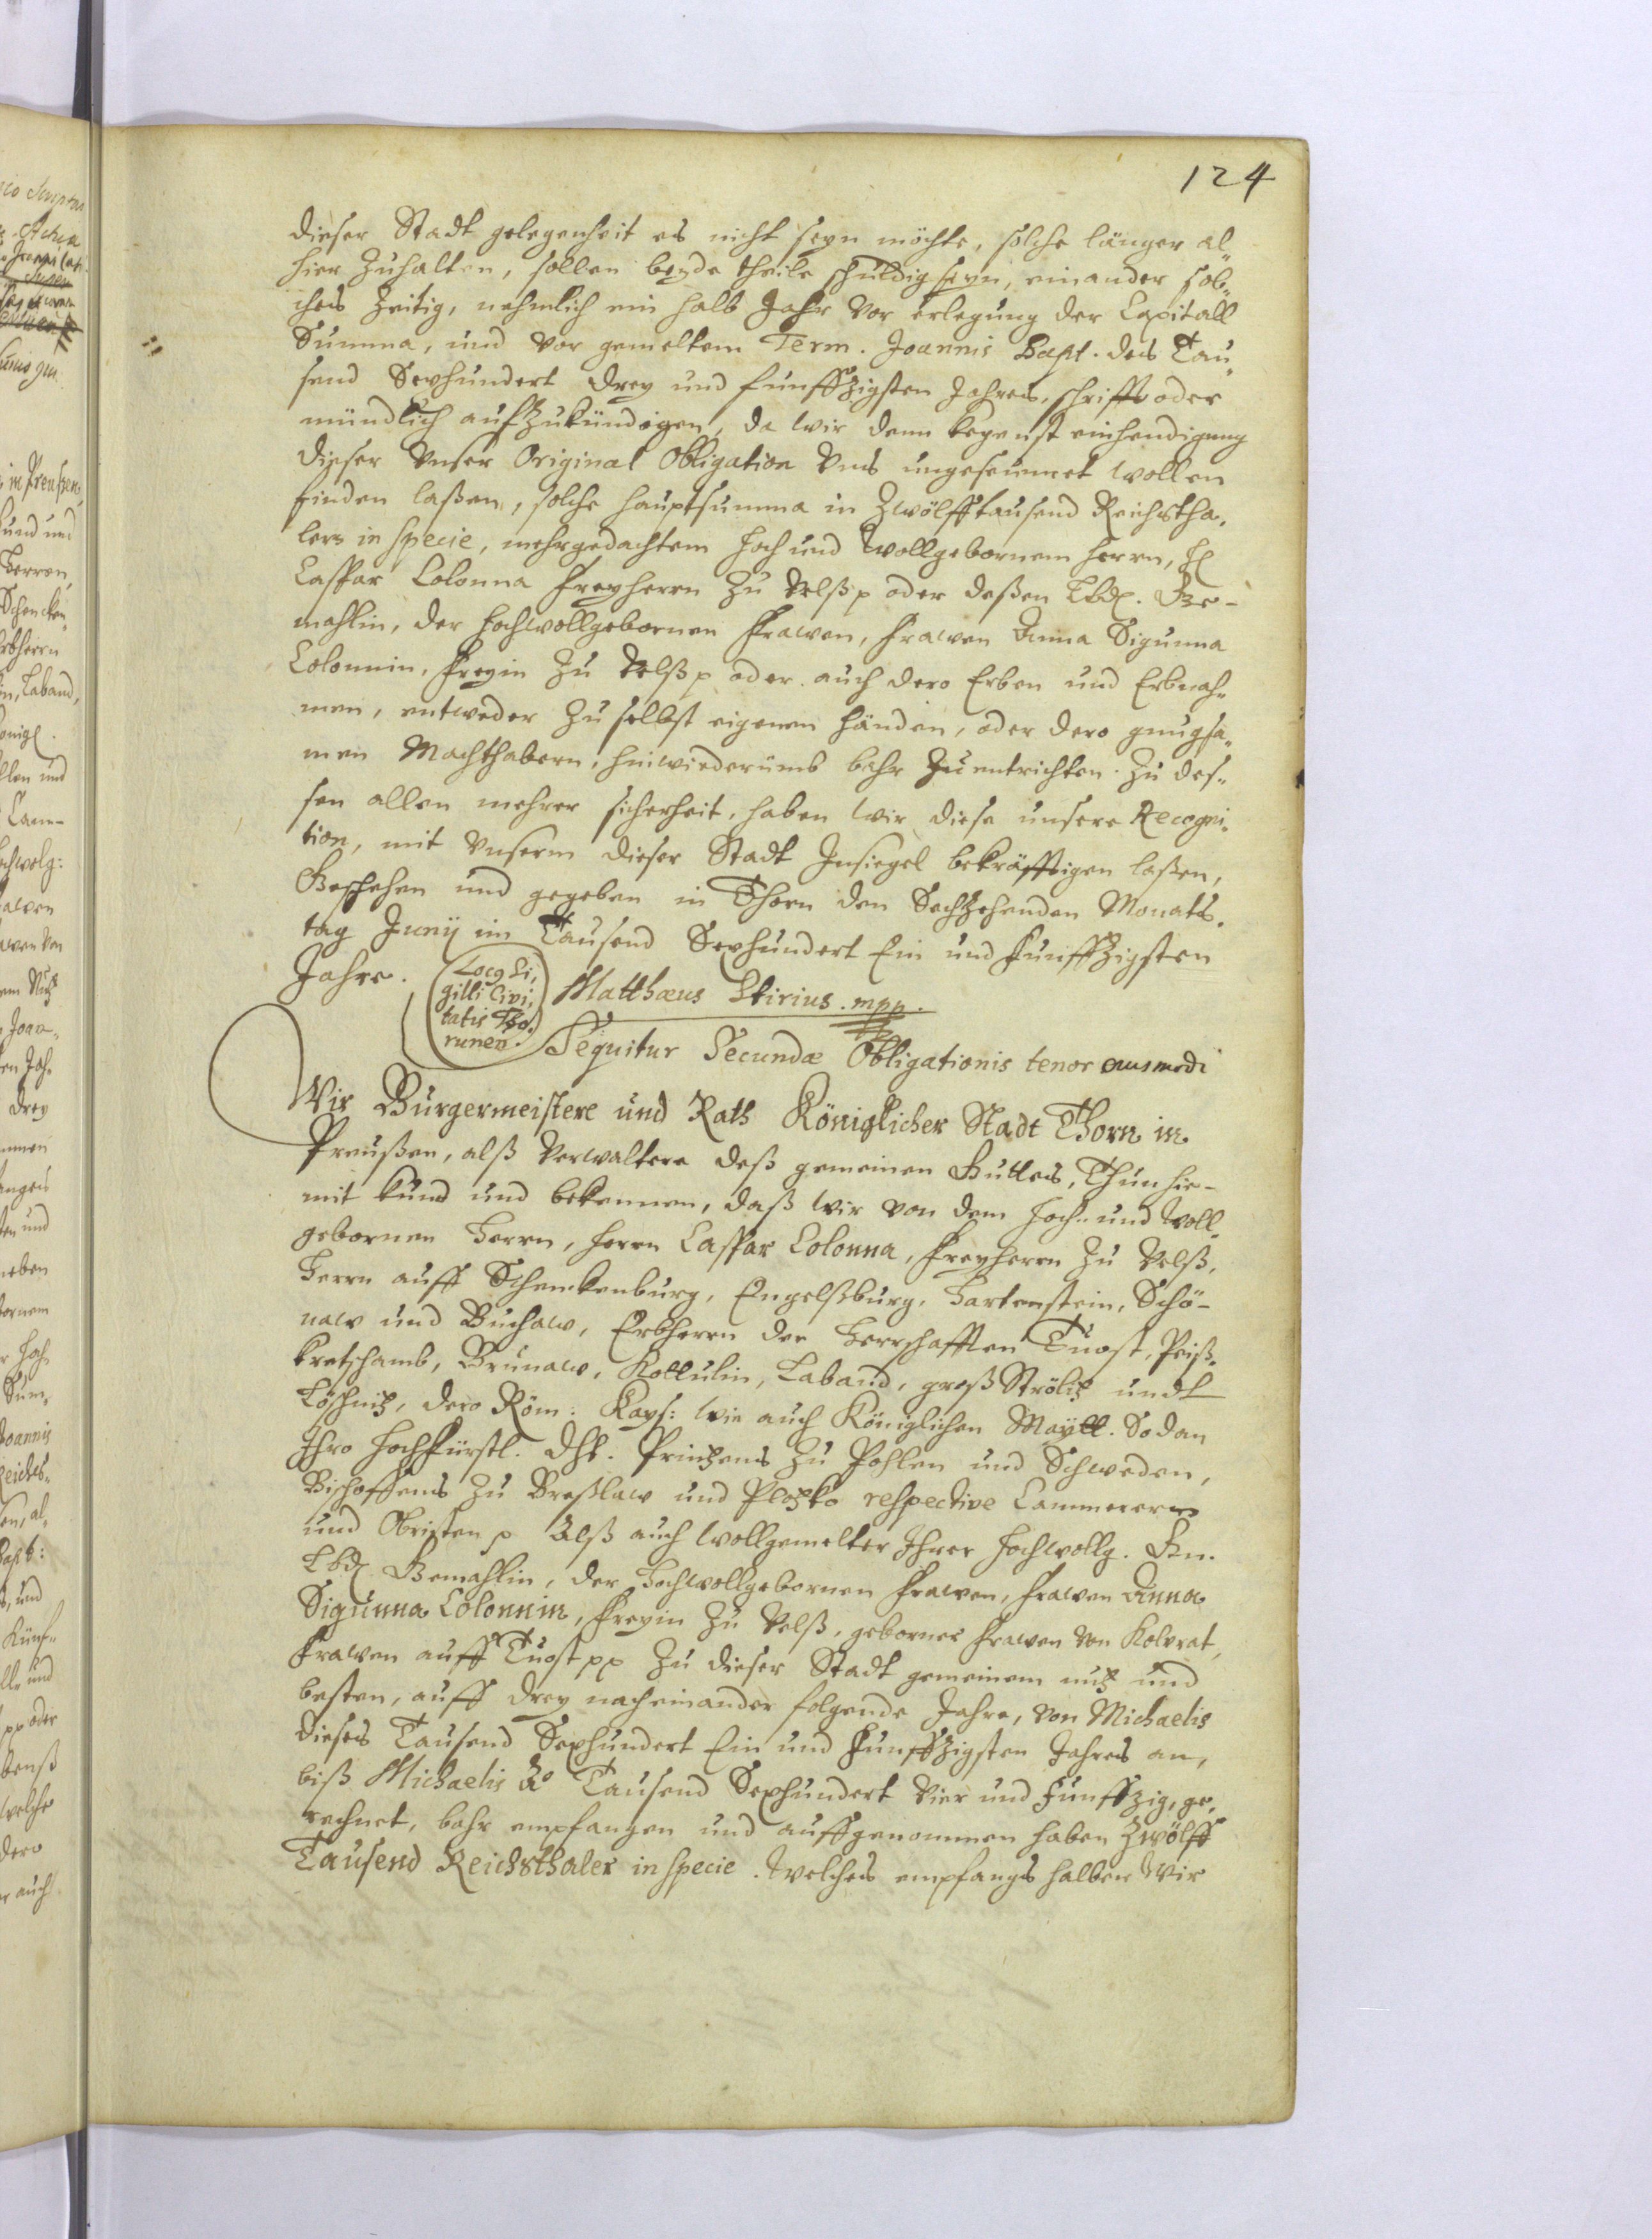 124
dieser Stadt gelegenheit es nicht seyn möchte, solche länger al„
hier Zuhalten, sollen beyde theile schuldig seyn, einander sol„
ches Zeitig, nehmlich ein halb Jahr vor erlegung der Capitall
Summa, und vor gemeltem Term. Joannis Bapt. des Tau„
send Sexhundert drey und funffzigsten Jahres, schrifft oder
mündlich aufzukündigen, da wir denn kegenst einhendigung
dieser Unser Original Obligation Uns ungeseumet wollen
finden laßen, solche hauptsumma in Zwölfftausend Reichstha„
lern in specie, mehrgedachtem hoch und Wollgebornem herrn, H
Caspar Colonna freyherrn Zu Velß p oder deßen Lbd. Ge-
mahlin, der hochwollgebornen frawen, frawen Anna Sigunna
Colonnin, freyin Zu Velß p oder auch dero Erben und Erbnah„
men, entweder Zu selbst eigenen händen, oder dero gnugsa„
men Machthabern, hinwiederumb bahr Zu entrichten. Zu des„
sen allen mehrer sicherheit, haben wir diese unsere Recogni„
tion, mit Unserm dieser Stadt Insiegel bekräfftigen laßen,
Geschehen und gegeben in Thorn den Sechzehenden Monats„
tag Junij im Tausend Sexhundert Ein und funffzigsten
Jahre.
Locg Si,
gilli Civi,
tatis Tho,
runen.
Matthæus Stirius. mpp.
Sequitur Secundæ Obligationis tenor
Wir Burgermeistere und Rath Königlicher Stadt Thorn in
Preußen, alß Verwaltere deß gemeinen Guttes, Thun hie-
mit kund und bekennen, daß wir von dem hoch„ und Woll„
gebornen Herrn, herrn Caspar Colonna, freyherrn Zu Velß,
Herrn auff Schenckenburg, Engelßburg, Hartenstein, Schö-
naw und Buchaw, Erbherrn der Herrschafften Tuost, Peiß„
kretschamb, Brunaw, Kottulin, Laband, groß Strölitz undt
Loschnitz, dero Röm: Kays: wie auch Königlichen Maytt. So dan
Ihro hochfürstl. Dhl. Printzens Zu Pohlen und Schweden,
Bischoffens Zu Breßlaw und Plotzko respective Cammerern
und Obristen p Alß auch wollgemelter Ihrer hochwollg. Gn.
Lbd. Gemahlin, der Hochwollgebornen frawen, frawen Anna
Sigunna Colonnin, freyin Zu Velß, geborner frawen von Kolvrat,
frawen auff Tuost pp Zu dieser Stadt gemeinem nutz und
besten, auff drey nacheinander folgende Jahre, von Michaelis
dieses Tausend Sexhundert Ein und Funffzigsten Jahres an,
biß Michaelis Ao Tausend Sexhundert Vier und Funffzig, ge„
rechnet, bahr empfangen und auffgenommen haben Zwölff
Tausend Reichsthaler in specie. Welches empfangs halber Wir